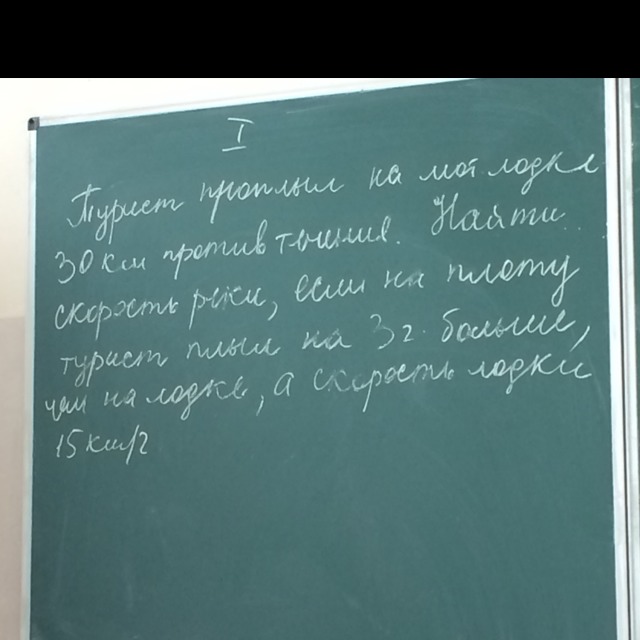 I
Турист проплыл на мот лодке
30 км против течения. Найти
скорость реки, если на плоту
турист плыл на 3 ч. больше,
чем на лодке, а скорость лодки
15 км/ч